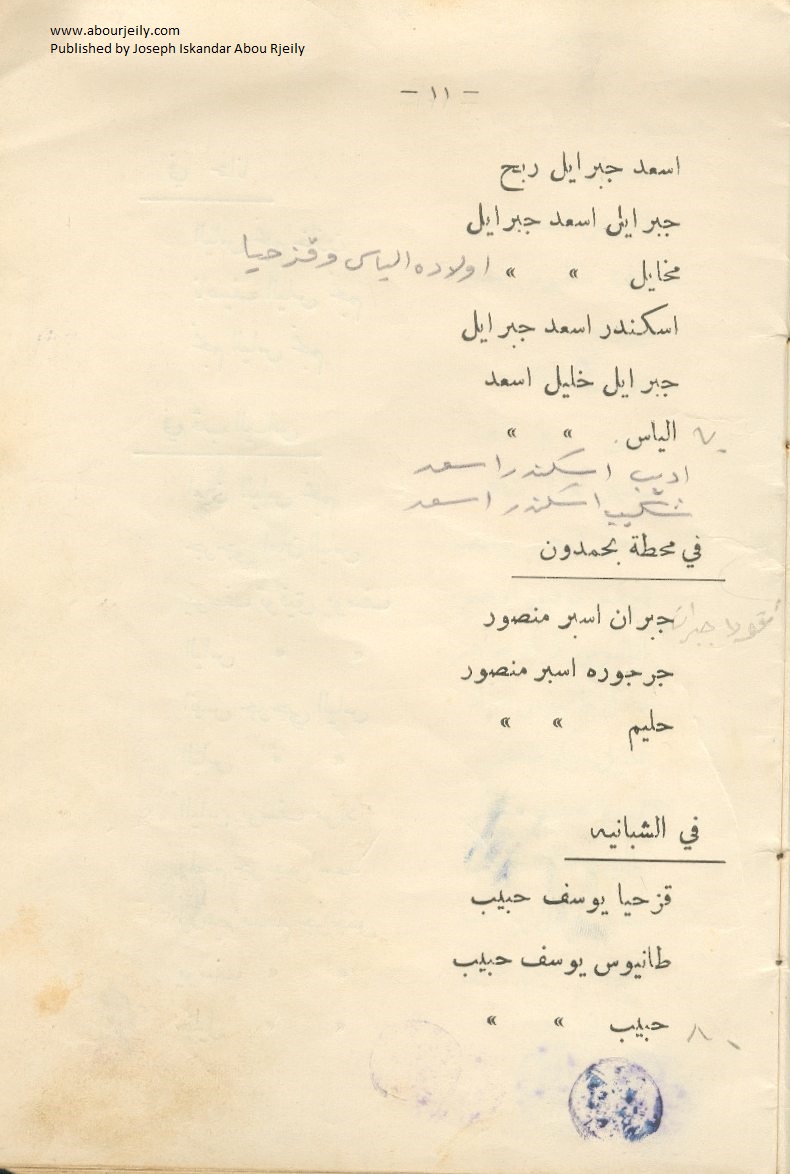 www.abourjeily.com
Published by Joseph Iskandar Abou Rjeily
- ١١ -
اسعد جبرايل ربح
جبرايل اسعد جبرايل
مخايل » » اولاده الياس وقزحيا
اسكندر اسعد جبرايل
جبرايل خليل اسعد
الياس » »
اديب اسكندر اسعد
شكيب اسكندر اسعد
في محطة بحمدون
جبران اسبر منصور
جرجوره اسبر منصور
حليم » »
في الشبانيه
قزحيا يوسف حبيب
طانيوس يوسف حبيب
حبيب » »